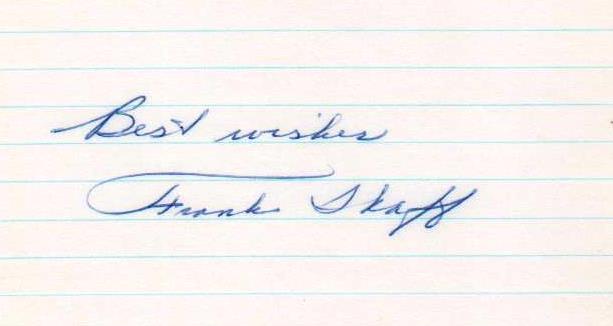 Best wishes
Frank Skaff